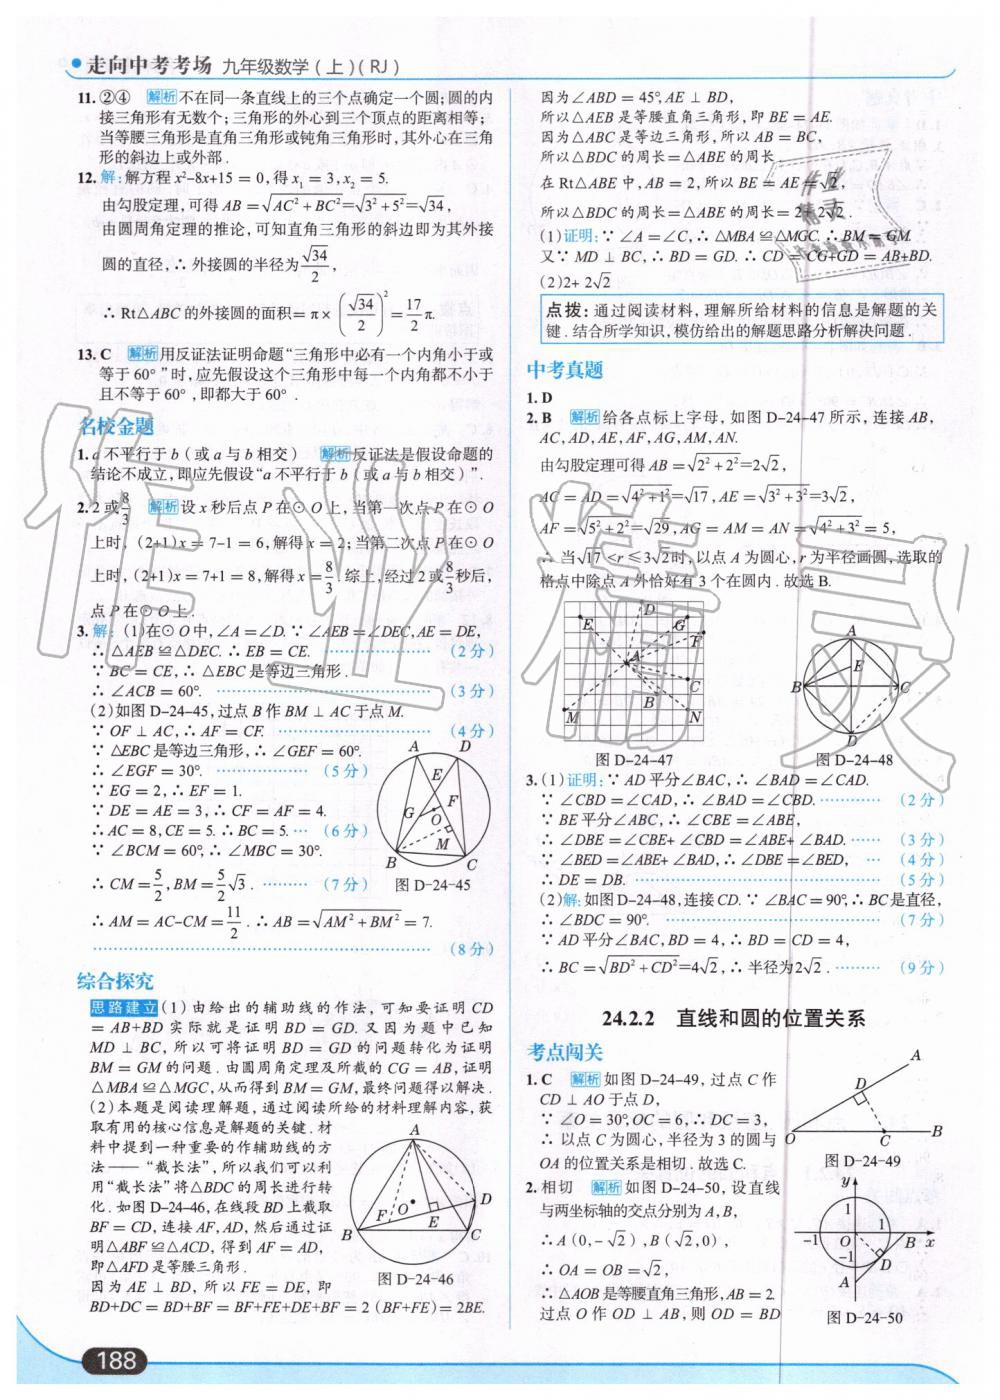 走向中考考场 九年级数学(上)(RJ)
11. ②④ 解析 不在同一条直线上的三个点确定一个圆;圆的内
接三角形有无数个;三角形的外心到三个顶点的距离相等;
当等腰三角形是直角三角形或钝角三角形时,其外心在三角
形的斜边上或外部.
12. 解:解方程x²-8x+15=0,得x₁=3,x₂=5.
由勾股定理,可得AB=√(AC²+BC²)=√(3²+5²)=√34,
由圆周角定理的推论,可知直角三角形的斜边即为其外接
圆的直径,∴外接圆的半径为√34/2,
∴Rt△ABC的外接圆的面积=π×(√34/2)²=17/2π.
13. C 解析 用反证法证明命题“三角形中必有一个内角小于或
等于60°”时,应先假设这个三角形中每一个内角都不小于
且不等于60°,即都大于60°.
名校金题
1. a不平行于b(或a与b相交) 解析 反证法是假设命题的
结论不成立,即应先假设“a不平行于b(或a与b相交)”.
2. 2或8/3 解析 设x秒后点P在⊙O上,当第一次点P在⊙O
上时,(2+1)x=7-1=6,解得x=2;当第二次点P在⊙O
上时,(2+1)x=7+1=8,解得x=8/3.综上,经过2或8/3秒后,
点P在⊙O上.
3. 解:(1)在⊙O中,∠A=∠D.∵∠AEB=∠DEC,AE=DE,
∴△AEB≌△DEC.∴EB=CE. (2分)
∵BC=CE,∴△EBC是等边三角形.
∴∠ACB=60°. (3分)
(2)如图D-24-45,过点B作BM⊥AC于点M.
∵OF⊥AC,∴AF=CF. (4分)
∵△EBC是等边三角形,∴∠GEF=60°.
∴∠EGF=30°. (5分)
∵EG=2,∴EF=1.
∵DE=AE=3,∴CF=AF=4.
∴AC=8,CE=5.∴BC=5. (6分)
∵∠BCM=60°,∴∠MBC=30°.
∴CM=5/2,BM=5/2√3. (7分)
A D E F G O M B C
图D-24-45
∴AM=AC-CM=11/2.∴AB=√(AM²+BM²)=7.
(8分)
综合探究
思路建立 (1)由给出的辅助线的作法,可知要证明CD
=AB+BD实际就是证明BD=GD.又因为题中已知
MD⊥BC,所以可将证明BD=GD的问题转化为证明
BM=GM的问题.由圆周角定理及所截的CG=AB,证明
△MBA≌△MGC,从而得到BM=GM,最终问题得以解决.
(2)本题是阅读理解题,通过阅读所给的材料理解内容,获
取有用的核心信息是解题的关键.材
料中提到一种重要的作辅助线的方
法——“截长法”,所以我们可以利
用“截长法”将△BDC的周长进行转
化.如图D-24-46,在线段BD上截取
BF=CD,连接AF,AD,然后通过证
明△ABF≌△ACD,得到AF=AD,
即△AFD是等腰三角形.
因为AE⊥BD,所以FE=DE,即
A D O F E B C
图D-24-46
BD+DC=BD+BF=BF+FE+DE+BF=2(BF+FE)=2BE.
因为∠ABD=45°,AE⊥BD,
所以△AEB是等腰直角三角形,即BE=AE.
因为△ABC是等边三角形,所以AB=BC,
所以△BDC的周长=△ABE的周长.
在Rt△ABE中,AB=2,所以BE=AE=√2,
所以△BDC的周长=△ABE的周长=2+2√2.
(1)证明:∵∠A=∠C,∴△MBA≌△MGC.∴BM=GM.
又∵MD⊥BC,∴BD=GD.∴CD=CG+GD=AB+BD.
(2)2+2√2
点拨:通过阅读材料,理解所给材料的信息是解题的关
键.结合所学知识,模仿给出的解题思路分析解决问题.
中考真题
1. D
2. B 解析 给各点标上字母,如图D-24-47所示,连接AB,
AC,AD,AE,AF,AG,AM,AN.
由勾股定理可得AB=√(2²+2²)=2√2,
AC=AD=√(4²+1²)=√17,AE=√(3²+3²)=3√2,
AF=√(5²+2²)=√29,AG=AM=AN=√(4²+3²)=5,
∴当√17<r≤3√2时,以点A为圆心,r为半径画圆,选取的
格点中除点A外恰好有3个在圆内.故选B.
D E G F A C B M N
图D-24-47
A E B C D
图D-24-48
3. (1)证明:∵AD平分∠BAC,∴∠BAD=∠CAD.
∵∠CBD=∠CAD,∴∠BAD=∠CBD. (2分)
∵BE平分∠ABC,∴∠CBE=∠ABE,
∴∠DBE=∠CBE+∠CBD=∠ABE+∠BAD. (3分)
∵∠BED=∠ABE+∠BAD,∴∠DBE=∠BED, (4分)
∴DE=DB. (5分)
(2)解:如图D-24-48,连接CD.∵∠BAC=90°,∴BC是直径,
∴∠BDC=90°. (7分)
∵AD平分∠BAC,BD=4,∴BD=CD=4,
∴BC=√(BD²+CD²)=4√2,∴半径为2√2. (9分)
24.2.2 直线和圆的位置关系
考点闯关
1. C 解析 如图D-24-49,过点C作
CD⊥AO于点D,
∵∠O=30°,OC=6,∴DC=3,
∴以点C为圆心,半径为3的圆与
OA的位置关系是相切.故选C.
A D O C B
图D-24-49
2. 相切 解析 如图D-24-50,设直线
与两坐标轴的交点分别为A,B,
∴A(0,-√2),B(√2,0),
∴OA=OB=√2,
∴△AOB是等腰直角三角形,AB=2.
过点O作OD⊥AB,则OD=BD
y 1 1 -1 O B x -1 D A
图D-24-50
188
作业精灵
作业
精灵